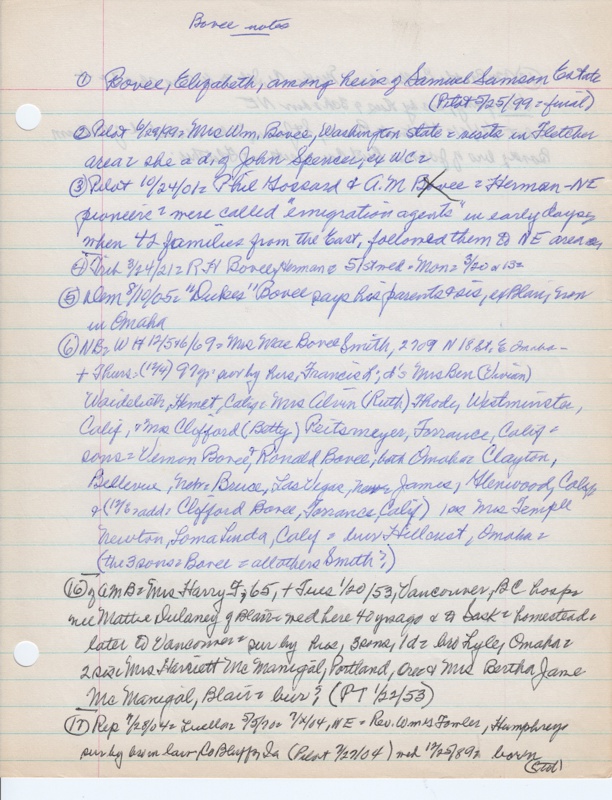 Bovee notes
① Bovee, Elizabeth, among heirs of Samuel Samson Estate
(Pilot 5/25/99 = final)
② Pilot 6/29/99 = Mrs Wm. Bovee, Washington State = visits in Fletcher
area = she a d. of John Spencer, ex WC =
③ Pilot 10/24/01 = Phil Gossard & A.M Bovee = Herman-NE
pioneers = were called "emigration agents" in early days,
when 42 families from the East, followed them to NE area
④ Trib 3/24/21 = R H Bovee, Herman = 51st wed = Mon = 3/20
⑤ Dem 8/10/05 = "Dukes" Bovee says his parents & sis, ex Blair, now
in Omaha
⑥ NB = WH 12/5 & 6/69 = Mrs Bovee Smith, 2709 N 18 St, E Omaha -
+ Thurs = (12/4) 97 yr = sur by hus, Francis R; d's Mrs Ben (Vivian)
Hemet, Calif = Mrs Alvin (Ruth) Thode, Westminster,
Calif, & Mrs Clifford (Betty) Peitsmeyer, Torrance, Calif =
sons = Vernon Bovee, Ronald Bovee, both Omaha = Clayton,
Bellevue, Neb = Bruce, Las Vegas, Nev = James, Glenwood, Calif
& (12/6 adds Clifford Bovee, Torrance, Calif) 1 sis Mrs Temple
Newton, Loma Linda, Calif = bur Hillcrest, Omaha =
(the 3 sons = Bovee = all others Smith?)
⑯ of AMB = Mrs Harry F, 65, + Tues 1/20/53, Vancouver, BC hosp =
nee Mattie Dulaney of Blair = wed here 42 yrs ago & to Sask = homestead =
later to Vancouver = sur by hus, 3 sons, 1 d = bro Lyle, Omaha =
2 sis = Mrs Harriett McManigal, Portland, Ore & Mrs Bertha Jane
McManigal, Blair = bur? (PT 1/22/53)
⑰ Rep 7/28/04 = Luella = NE = Rev. Wm Fowler, Humphreys
sur by bro in law Co Bluffs, Ia (Pilot 7/27/04) wed 12/25/89 = born
(ctd)